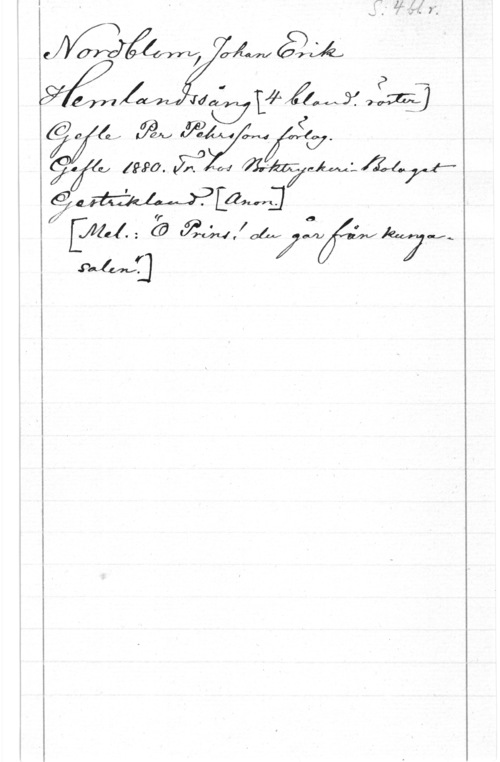 S. 4 bl. r.
Nordblom, Johan Erik
Hemlandssång [4 bland. röster]
Gefle Per Pehrssons förlag.
Gefle 1880. Tr. hos Boktryckeri-Bolaget
Gestrikland. [Anon.]
[Mel.: "O Prins! du går från kunga-
salen."]